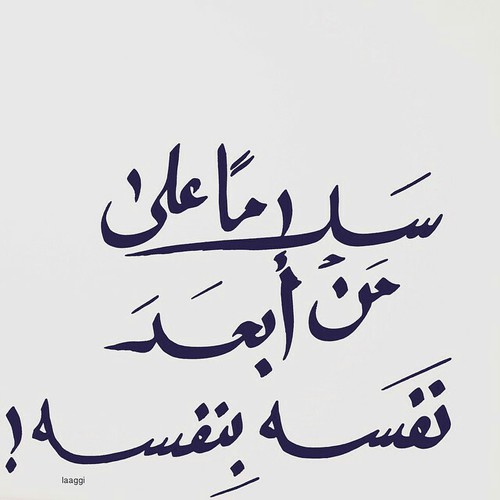 سَلاماً على
مَنْ أبعدَ
نَفسَه بِنفسه !
laaggi